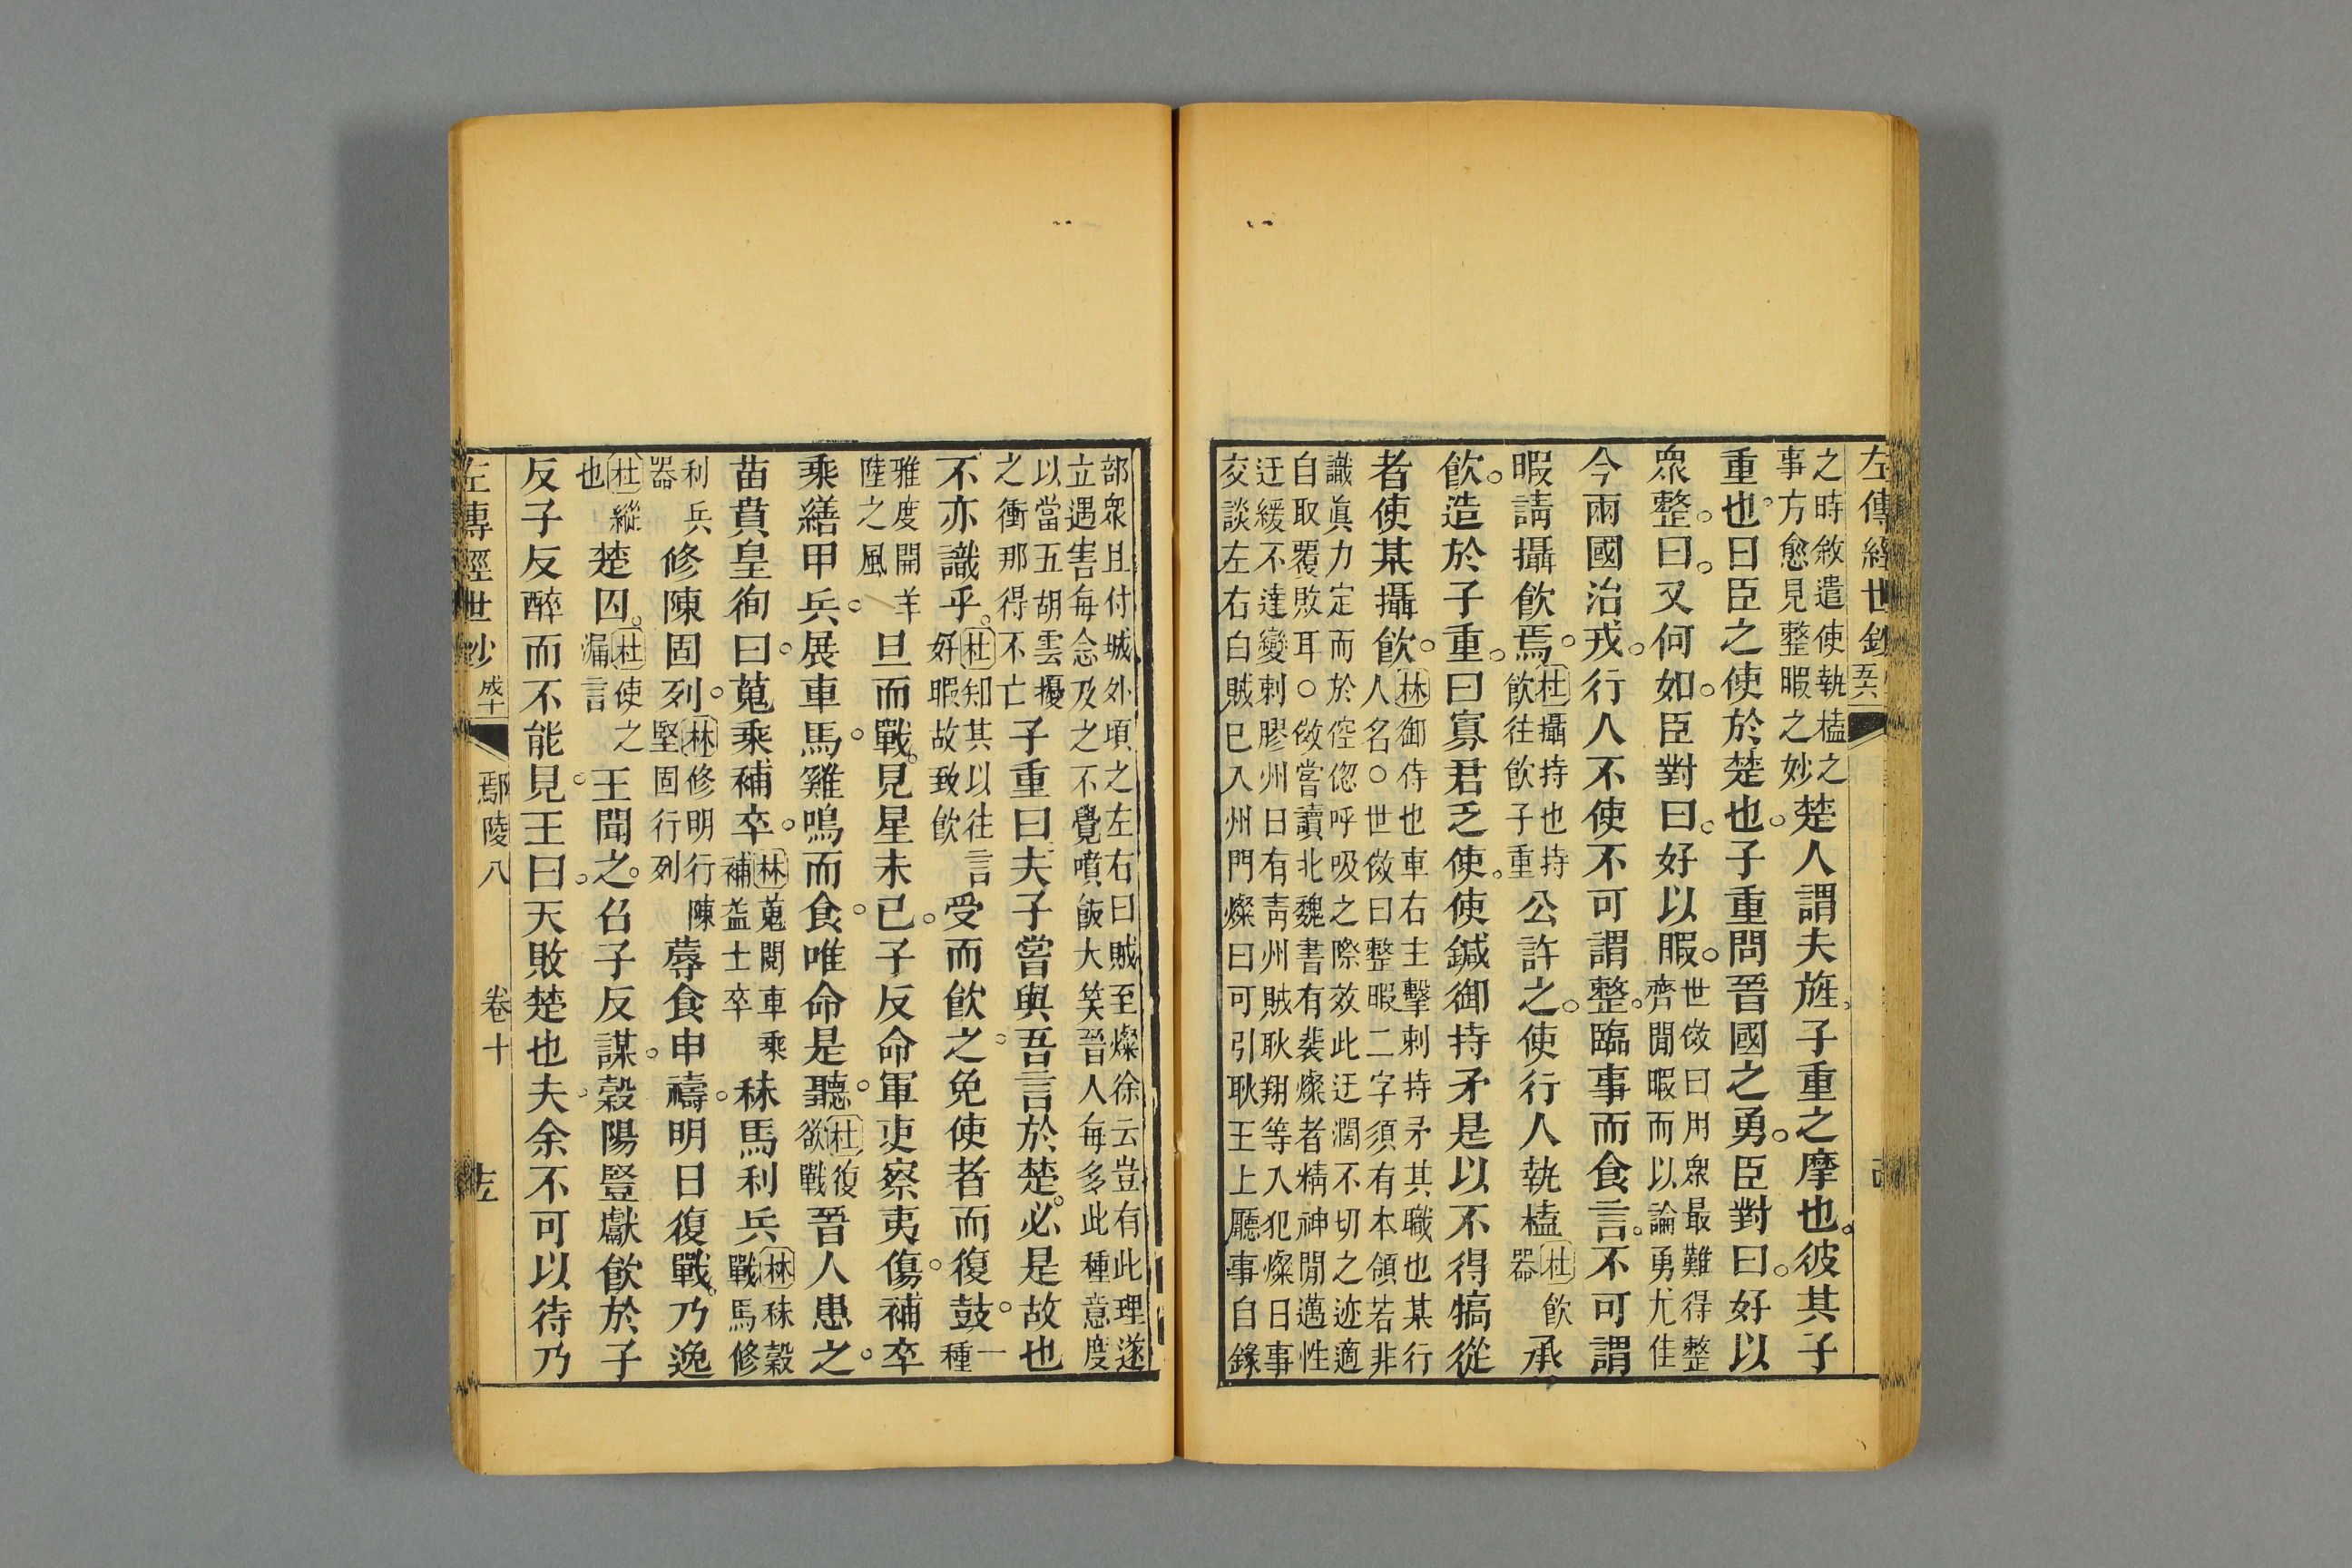 左傳經世鈔
之時敘遣使執榼之
事方愈見整暇之妙
楚人謂夫旌子重之麾也彼其子
重也曰臣之使於楚也子重問晉國之勇臣對曰好以
眾整曰又何如臣對曰好以暇
世傚曰用眾最難得整
齊閒暇而以論勇尤佳
今兩國治戎行人不使不可謂整臨事而食言不可謂
暇請攝飲焉
杜攝持也持
飲往飲子重
公許之使行人執榼
杜飲
器
承
飲造於子重曰寡君乏使使鍼御持矛是以不得犒從
者使某攝飲
林御侍也車右主擊刺持矛其職也某行
人名○世傚曰整暇二字須有本領若非
識真力定而於倥偬呼吸之際效此迂濶不切之迹適
自取覆敗耳○傚嘗讀北魏書有裴燦者精神閒邁性
迂緩不達變刺膠州日有青州賊耿翔等入犯燦日事
交談左右白賊已入州門燦曰可引耿王上廳事自錄
部眾且付城外頃之左右曰賊至燦徐云豈有此理遂
立遇害每念及之不覺噴飯大笑晉人每多此種意度
以當五胡雲擾
之衝那得不亡
子重曰夫子嘗與吾言於楚必是故也
不亦識乎
杜知其以往言
好暇故致飲
受而飲之免使者而復鼓
一
種
雅度開羊
陸之風
旦而戰見星未已子反命軍吏察夷傷補卒
乘繕甲兵展車馬雞鳴而食唯命是聽
杜復
欲戰
晉人患之
苗賁皇徇曰蒐乘補卒
林蒐閱車乘
補益士卒
秣馬利兵
林秣穀
戰馬修
利兵
器
修陳固列
林修明行陳
堅固行列
蓐食申禱明日復戰乃逸
杜縱
也
楚囚
杜使之
漏言
王聞之召子反謀穀陽豎獻飲於子
反子反醉而不能見王曰天敗楚也夫余不可以待乃
左傳經世鈔 成十 鄢陵八 卷十